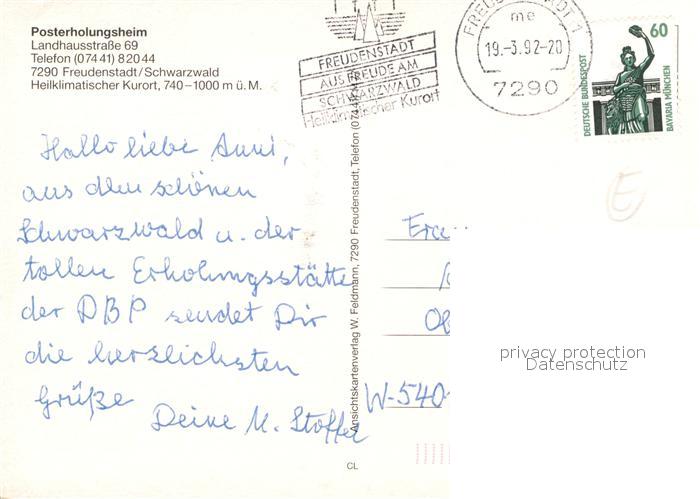 Posterholungsheim
Landhausstraße 69
Telefon (07441) 82044
7290 Freudenstadt/Schwarzwald
Heilklimatischer Kurort, 740–1000 m ü. M.
FREUDENSTADT
AUS FREUDE AM
SCHWARZWALD
Heilklimatischer Kurort
FREUDENSTADT 1
me
19.-3.92-20
7290
60
DEUTSCHE BUNDESPOST
BAVARIA MÜNCHEN
E
Hallo liebe Anni,
aus dem schönen
Schwarzwald u. der
tollen Erholungsstätte
der DBP sendet Dir
die herzlichsten
Grüße
Deine M. Stoffel
Ansichtskartenverlag W. Feldmann, 7290 Freudenstadt, Telefon (0744
W-540
privacy protection
Datenschutz
CL